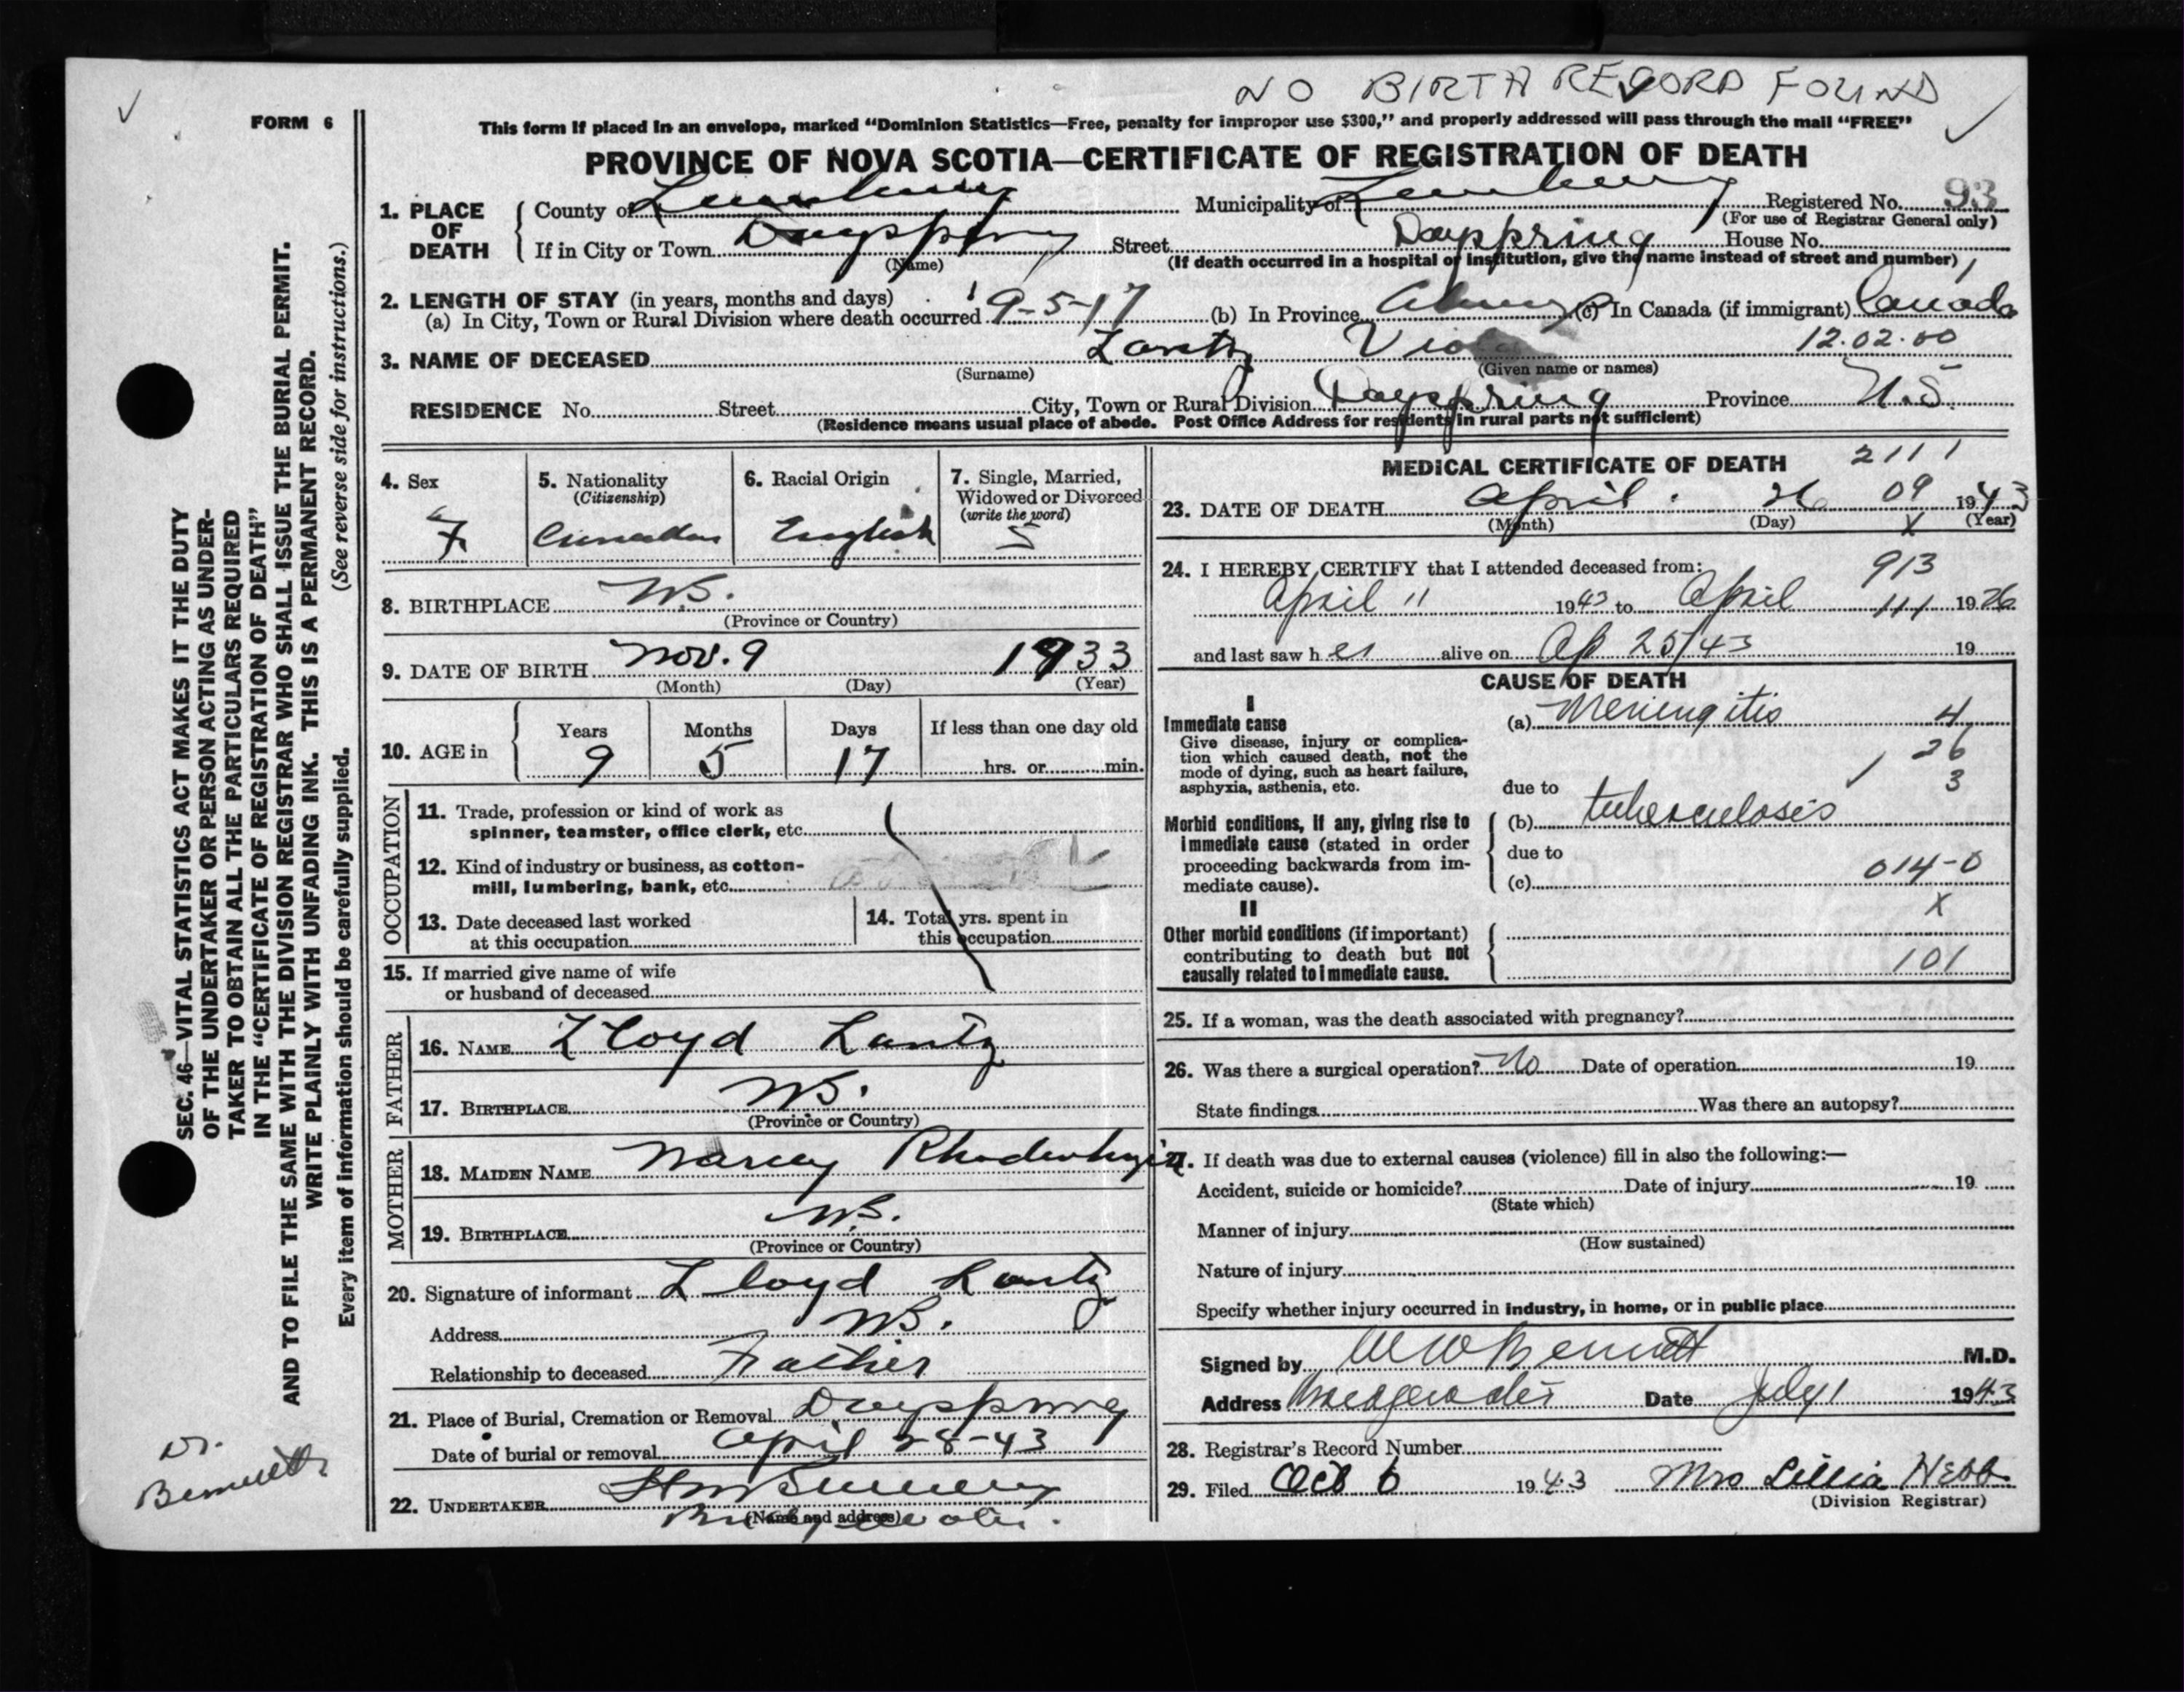 NO BIRTH RECORD FOUND
FORM 6
This form if placed in an envelope, marked "Dominion Statistics—Free, penalty for improper use $300," and properly addressed will pass through the mail "FREE"
PROVINCE OF NOVA SCOTIA—CERTIFICATE OF REGISTRATION OF DEATH
1. PLACE OF DEATH
County of Lunenburg Municipality of Lunenburg Registered No. 93
(For use of Registrar General only)
If in City or Town Dayspring Street Dayspring House No.
(Name) (If death occurred in a hospital or institution, give the name instead of street and number)
2. LENGTH OF STAY (in years, months and days)
(a) In City, Town or Rural Division where death occurred 9-5-17 (b) In Province Always (c) In Canada (if immigrant) Canada
12.02.00
3. NAME OF DECEASED Lantz Viola
(Surname) (Given name or names)
RESIDENCE No. Street City, Town or Rural Division Dayspring Province N.S.
(Residence means usual place of abode. Post Office Address for residents in rural parts not sufficient)
4. Sex
F
5. Nationality
(Citizenship)
Canadian
6. Racial Origin
English
7. Single, Married, Widowed or Divorced
(write the word)
S
8. BIRTHPLACE N.S.
(Province or Country)
9. DATE OF BIRTH Nov. 9 1933
(Month) (Day) (Year)
10. AGE in
Years Months Days If less than one day old
9 5 17 hrs. or min.
OCCUPATION
11. Trade, profession or kind of work as
spinner, teamster, office clerk, etc.
12. Kind of industry or business, as cotton-
mill, lumbering, bank, etc.
13. Date deceased last worked
at this occupation
14. Total yrs. spent in
this occupation
15. If married give name of wife
or husband of deceased
FATHER
16. NAME Lloyd Lantz
17. BIRTHPLACE N.S.
(Province or Country)
MOTHER
18. MAIDEN NAME Rhodenhizer
19. BIRTHPLACE N.S.
(Province or Country)
20. Signature of informant Lloyd Lantz
Address N.S.
Relationship to deceased Father
21. Place of Burial, Cremation or Removal Dayspring
Date of burial or removal April 28-43
22. UNDERTAKER
(Name and address)
MEDICAL CERTIFICATE OF DEATH 2111
23. DATE OF DEATH April 26 09 1943
(Month) (Day) X (Year)
24. I HEREBY CERTIFY that I attended deceased from: 913
April 11 1943 to April 111 1926
and last saw her alive on Ap 25/43 19
CAUSE OF DEATH
I
Immediate cause
Give disease, injury or complica-
tion which caused death, not the
mode of dying, such as heart failure,
asphyxia, asthenia, etc.
(a) Meningitis 4
26
3
due to
Morbid conditions, if any, giving rise to
immediate cause (stated in order
proceeding backwards from im-
mediate cause).
(b) tuberculosis
due to
(c) 014-0
X
II
Other morbid conditions (if important)
contributing to death but not
causally related to immediate cause.
101
25. If a woman, was the death associated with pregnancy?
26. Was there a surgical operation? No Date of operation 19
State findings Was there an autopsy?
27. If death was due to external causes (violence) fill in also the following:—
Accident, suicide or homicide? Date of injury 19
(State which)
Manner of injury
(How sustained)
Nature of injury
Specify whether injury occurred in industry, in home, or in public place
Signed by Bennett M.D.
Address Bridgewater Date July 1 1943
28. Registrar's Record Number
29. Filed Oct 6 1943 Mrs Lillia Hebb
(Division Registrar)
SEC. 46—VITAL STATISTICS ACT MAKES IT THE DUTY
OF THE UNDERTAKER OR PERSON ACTING AS UNDER-
TAKER TO OBTAIN ALL THE PARTICULARS REQUIRED
IN THE "CERTIFICATE OF REGISTRATION OF DEATH"
AND TO FILE THE SAME WITH THE DIVISION REGISTRAR WHO SHALL ISSUE THE BURIAL PERMIT.
WRITE PLAINLY WITH UNFADING INK. THIS IS A PERMANENT RECORD.
Every item of information should be carefully supplied. (See reverse side for instructions.)
Dr.
Bennett